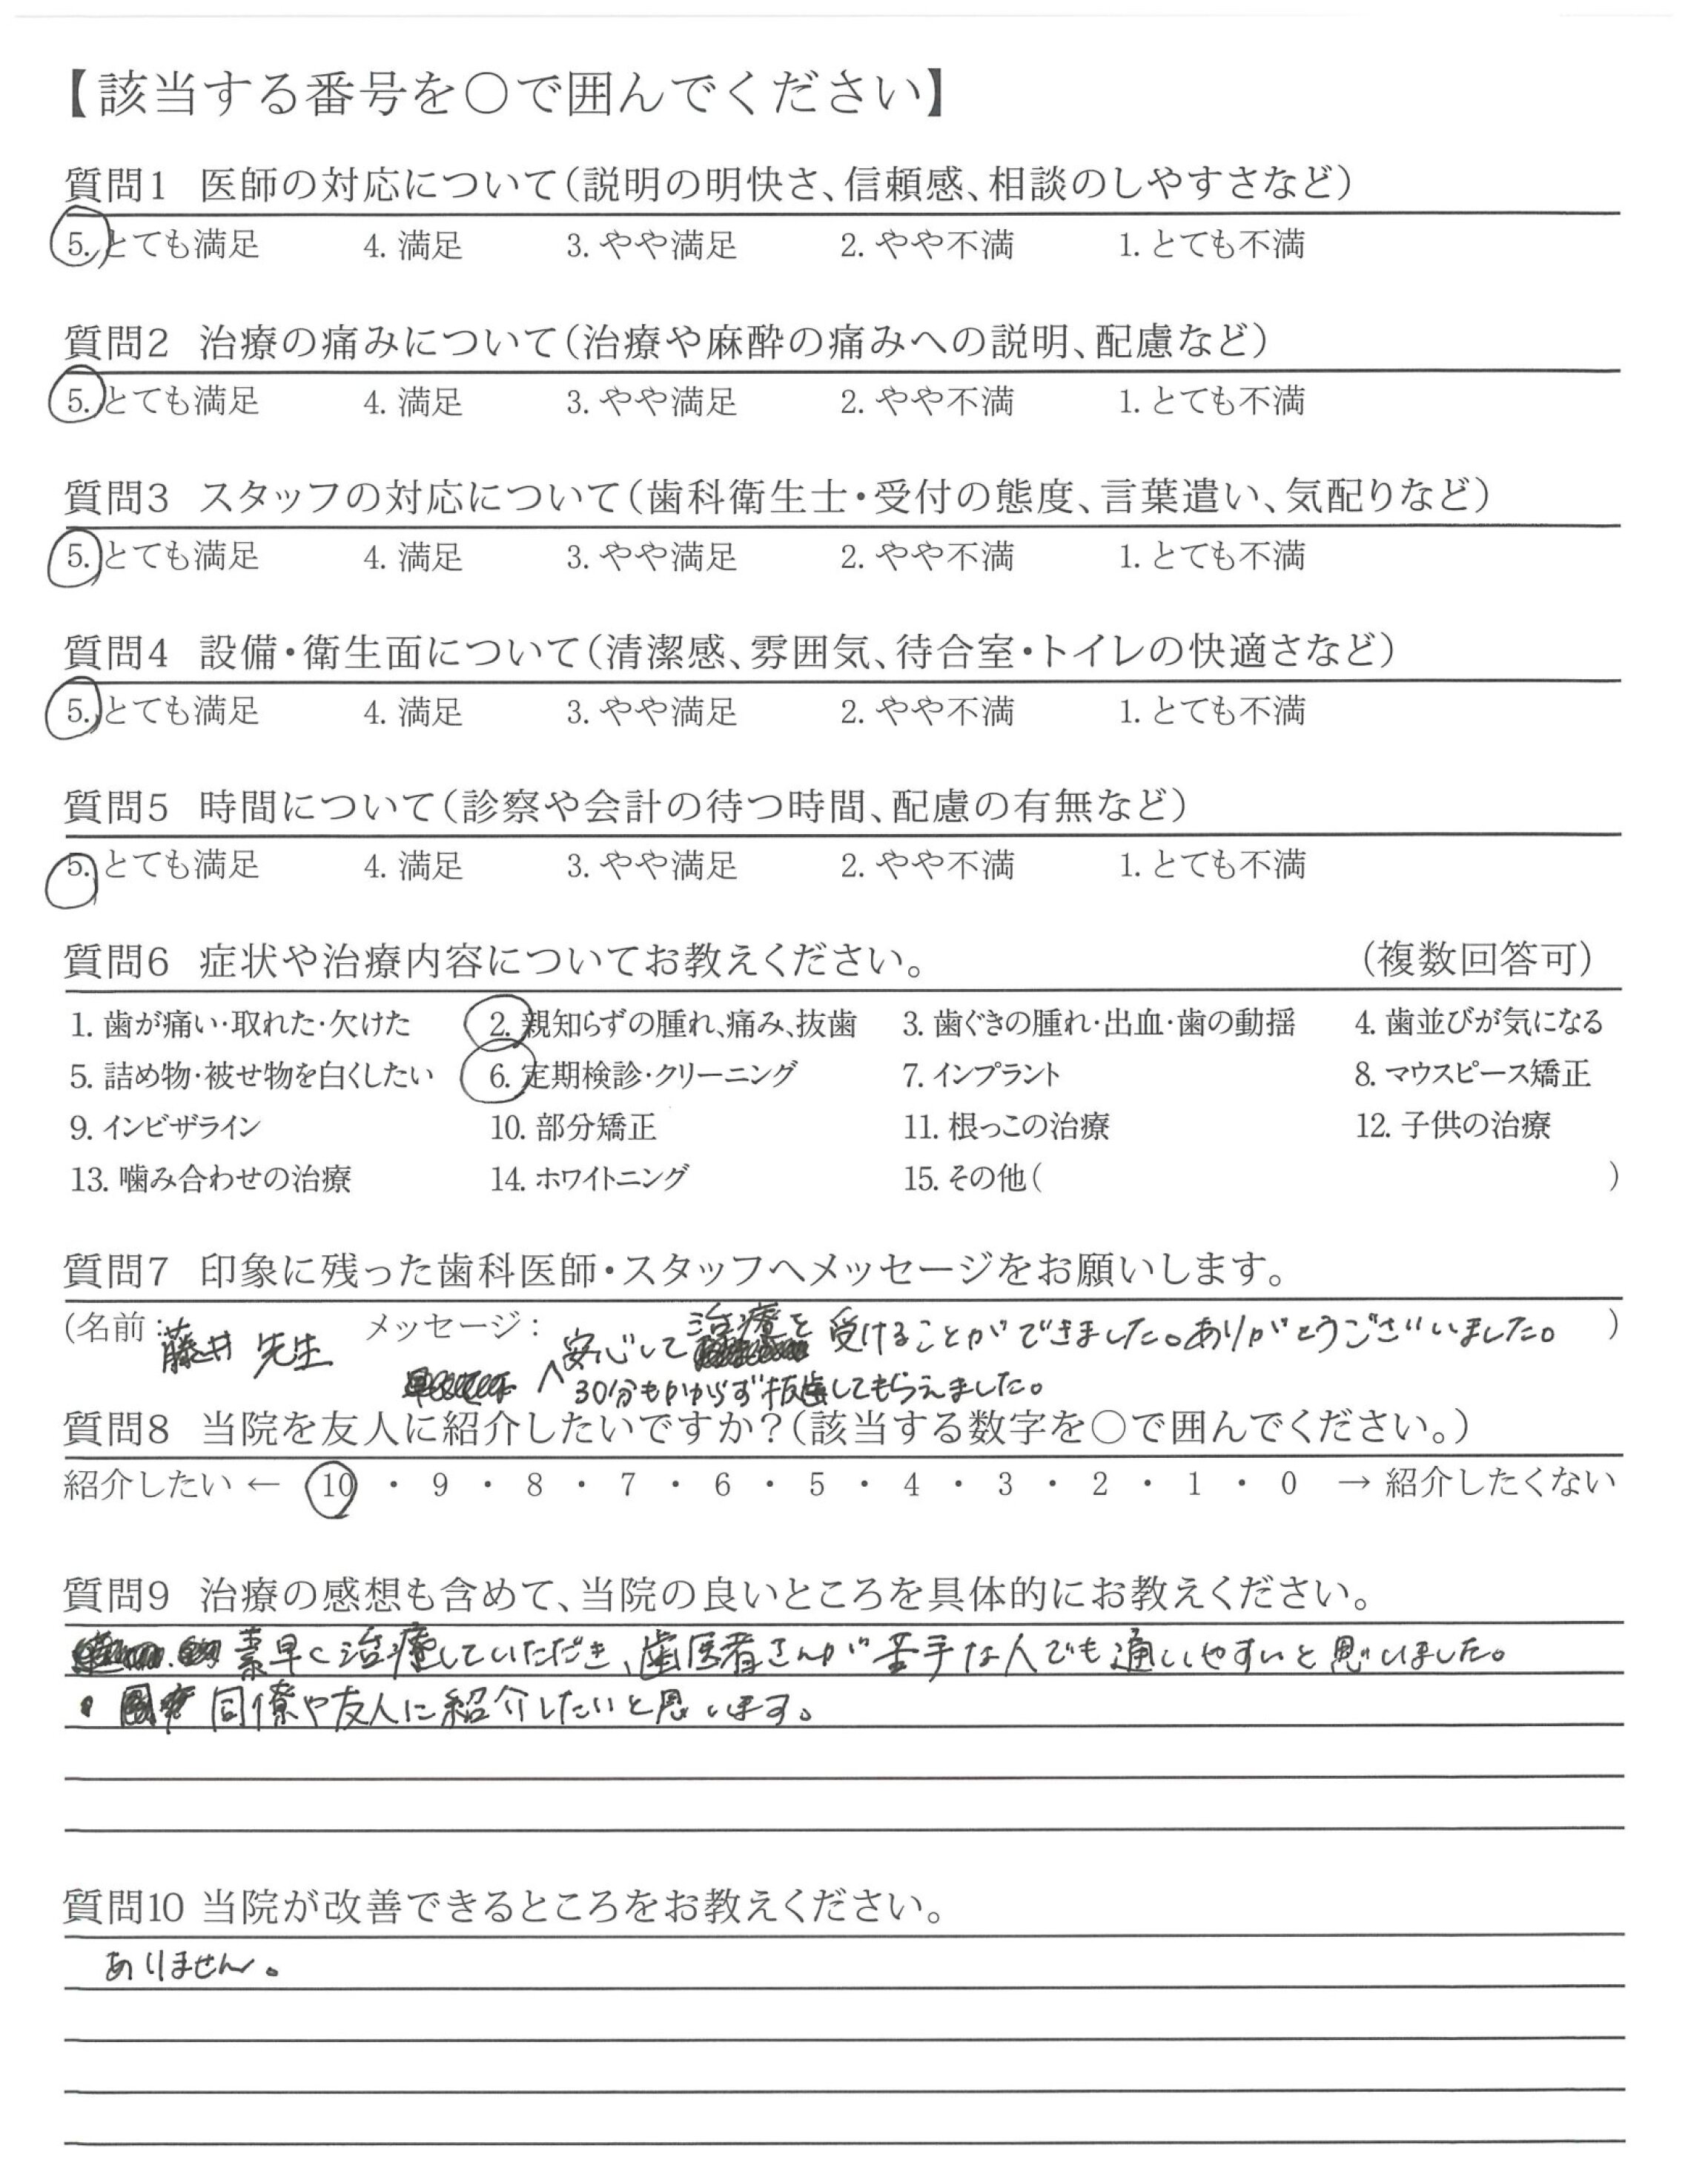 【該当する番号を○で囲んでください】
質問1 医師の対応について(説明の明快さ、信頼感、相談のしやすさなど)
5. とても満足 4. 満足 3. やや満足 2. やや不満 1. とても不満
質問2 治療の痛みについて(治療や麻酔の痛みへの説明、配慮など)
5. とても満足 4. 満足 3. やや満足 2. やや不満 1. とても不満
質問3 スタッフの対応について(歯科衛生士・受付の態度、言葉遣い、気配りなど)
5. とても満足 4. 満足 3. やや満足 2. やや不満 1. とても不満
質問4 設備・衛生面について(清潔感、雰囲気、待合室・トイレの快適さなど)
5. とても満足 4. 満足 3. やや満足 2. やや不満 1. とても不満
質問5 時間について(診察や会計の待つ時間、配慮の有無など)
5. とても満足 4. 満足 3. やや満足 2. やや不満 1. とても不満
質問6 症状や治療内容についてお教えください。 (複数回答可)
1. 歯が痛い・取れた・欠けた 2. 親知らずの腫れ、痛み、抜歯 3. 歯ぐきの腫れ・出血・歯の動揺 4. 歯並びが気になる
5. 詰め物・被せ物を白くしたい 6. 定期検診・クリーニング 7. インプラント 8. マウスピース矯正
9. インビザライン 10. 部分矯正 11. 根っこの治療 12. 子供の治療
13. 噛み合わせの治療 14. ホワイトニング 15. その他( )
質問7 印象に残った歯科医師・スタッフへメッセージをお願いします。
(名前: 藤井 先生 メッセージ: 安心して治療を受けることができました。ありがとうございました。 )
30分もかからず抜歯してもらえました。
質問8 当院を友人に紹介したいですか?(該当する数字を○で囲んでください。)
紹介したい ← 10 ・ 9 ・ 8 ・ 7 ・ 6 ・ 5 ・ 4 ・ 3 ・ 2 ・ 1 ・ 0 → 紹介したくない
質問9 治療の感想も含めて、当院の良いところを具体的にお教えください。
素早く治療していただき、歯医者さんが苦手な人でも通いやすいと思いました。
同僚や友人に紹介したいと思います。
質問10 当院が改善できるところをお教えください。
ありません。